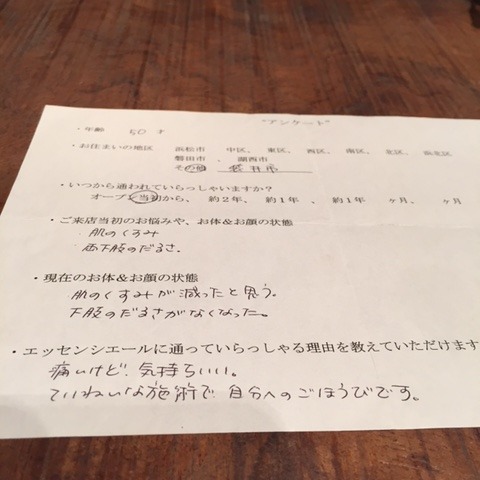 "アンケート"
・年齢 50 才
・お住まいの地区 浜松市 中区、 東区、 西区、 南区、 北区、 浜北区
磐田市 、 湖西市
その他 袋井市
・いつから通われていらっしゃいますか?
オープン当初から、 約2年、 約1年 、 約1年 ヶ月、 ヶ月
・ご来店当初のお悩みや、お体&お顔の状態
肌のくすみ
両下肢のだるさ、
・現在のお体&お顔の状態
肌のくすみが減ったと思う。
下肢のだるさがなくなった。
・エッセンシエールに通っていらっしゃる理由を教えていただけます
痛いけど、気持ちいい。
ていねいな施術で、自分へのごほうびです。